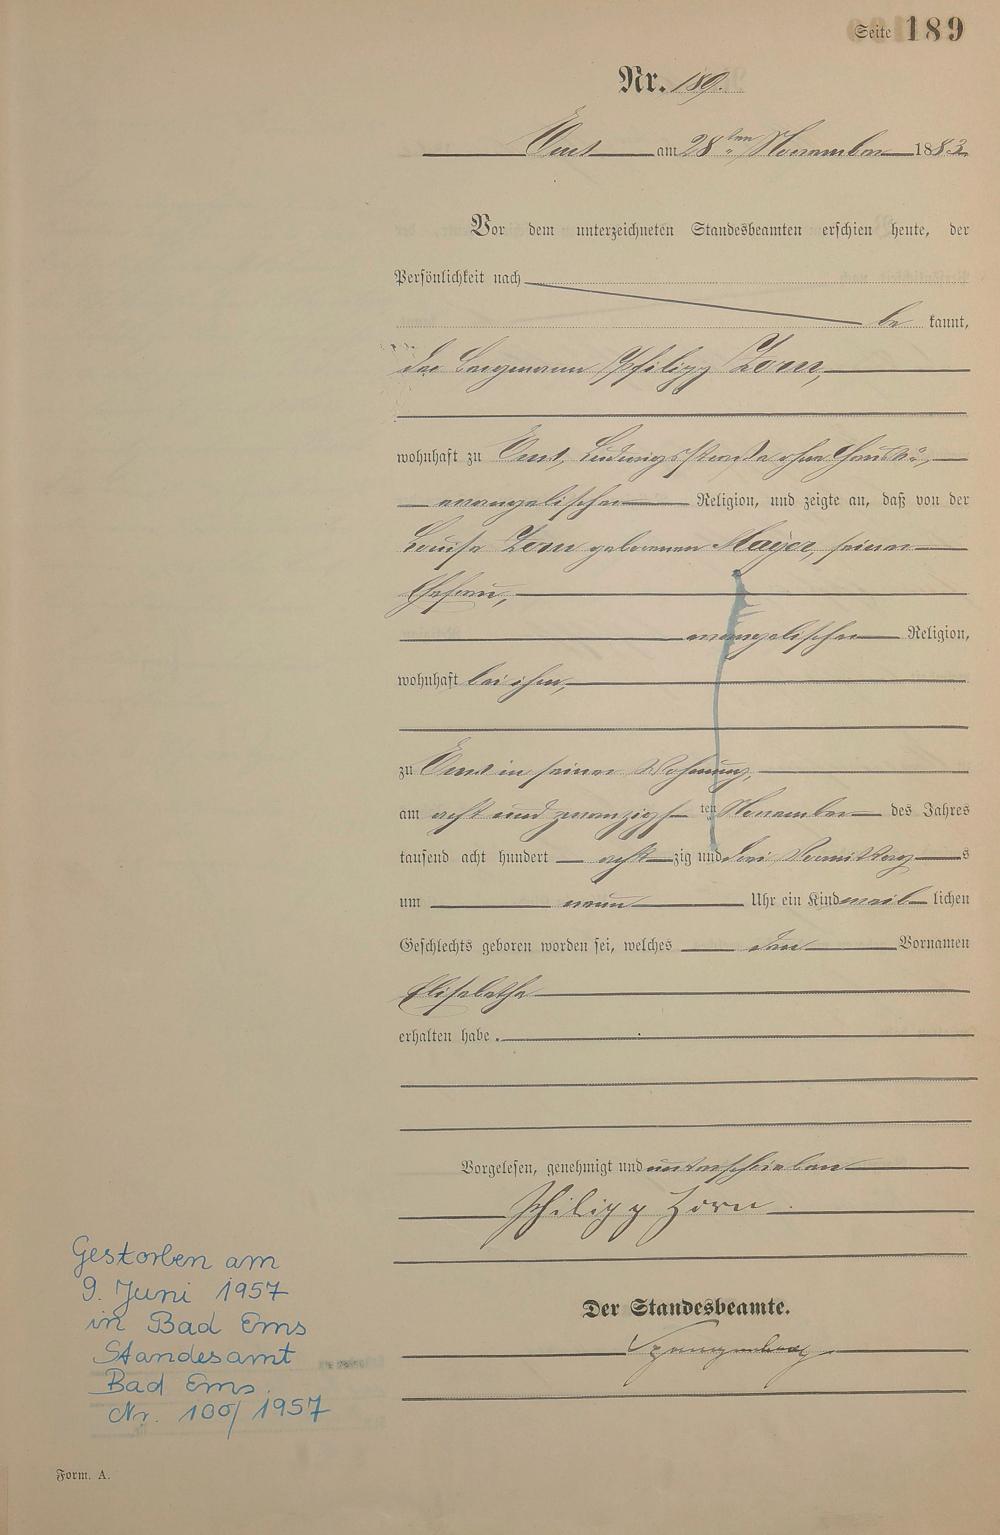 Seite 189
Nr. 189.
Ems am 28ten November 1883
Vor dem unterzeichneten Standesbeamten erschien heute, der
Persönlichkeit nach
be kannt,
der Bergmann Philipp Zorn,
wohnhaft zu Ems, Ludwigsstraße ohne
evangelischer Religion, und zeigte an, daß von der
Louise Zorn geborenen Mayer, seiner
Ehefrau,
evangelischer Religion,
wohnhaft bei ihm,
zu Ems in seiner Wohnung,
am acht und zwanzigsten November des Jahres
tausend acht hundert acht zig und drei Vormittags
um neun Uhr ein Kind weib lichen
Geschlechts geboren worden sei, welches den Vornamen
Elisabetha
erhalten habe.
Vorgelesen, genehmigt und unterschrieben
Philipp Zorn
Der Standesbeamte.
Spangenberg
Gestorben am
9. Juni 1957
in Bad Ems
Standesamt
Bad Ems
Nr. 100/1957
Form. A.